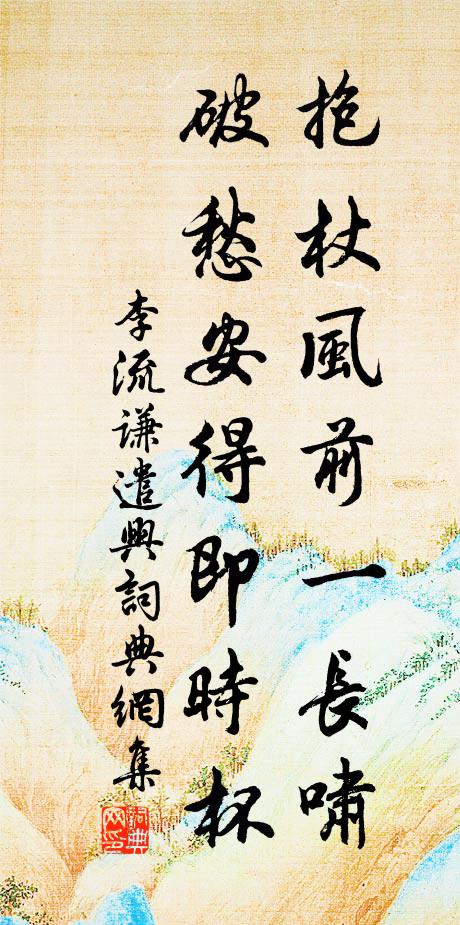 抱杖風前一長嘯
破愁安得即時杯
李流謙遣興詞典網集
詞典网印